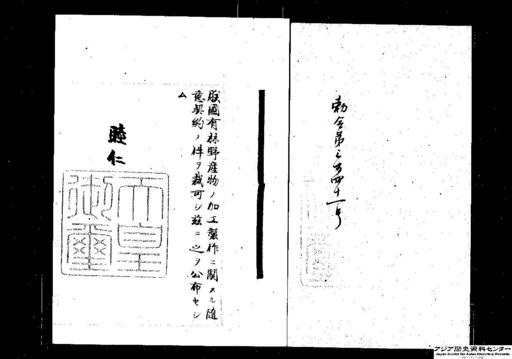 勅令第三百四十一号
朕国有林野産物ノ加工製作ニ関スル随
意契約ノ件ヲ裁可シ茲ニ之ヲ公布セシ
ム
睦仁
天皇
御璽
アジア歴史資料センター
Japan Center for Asian Historical Records